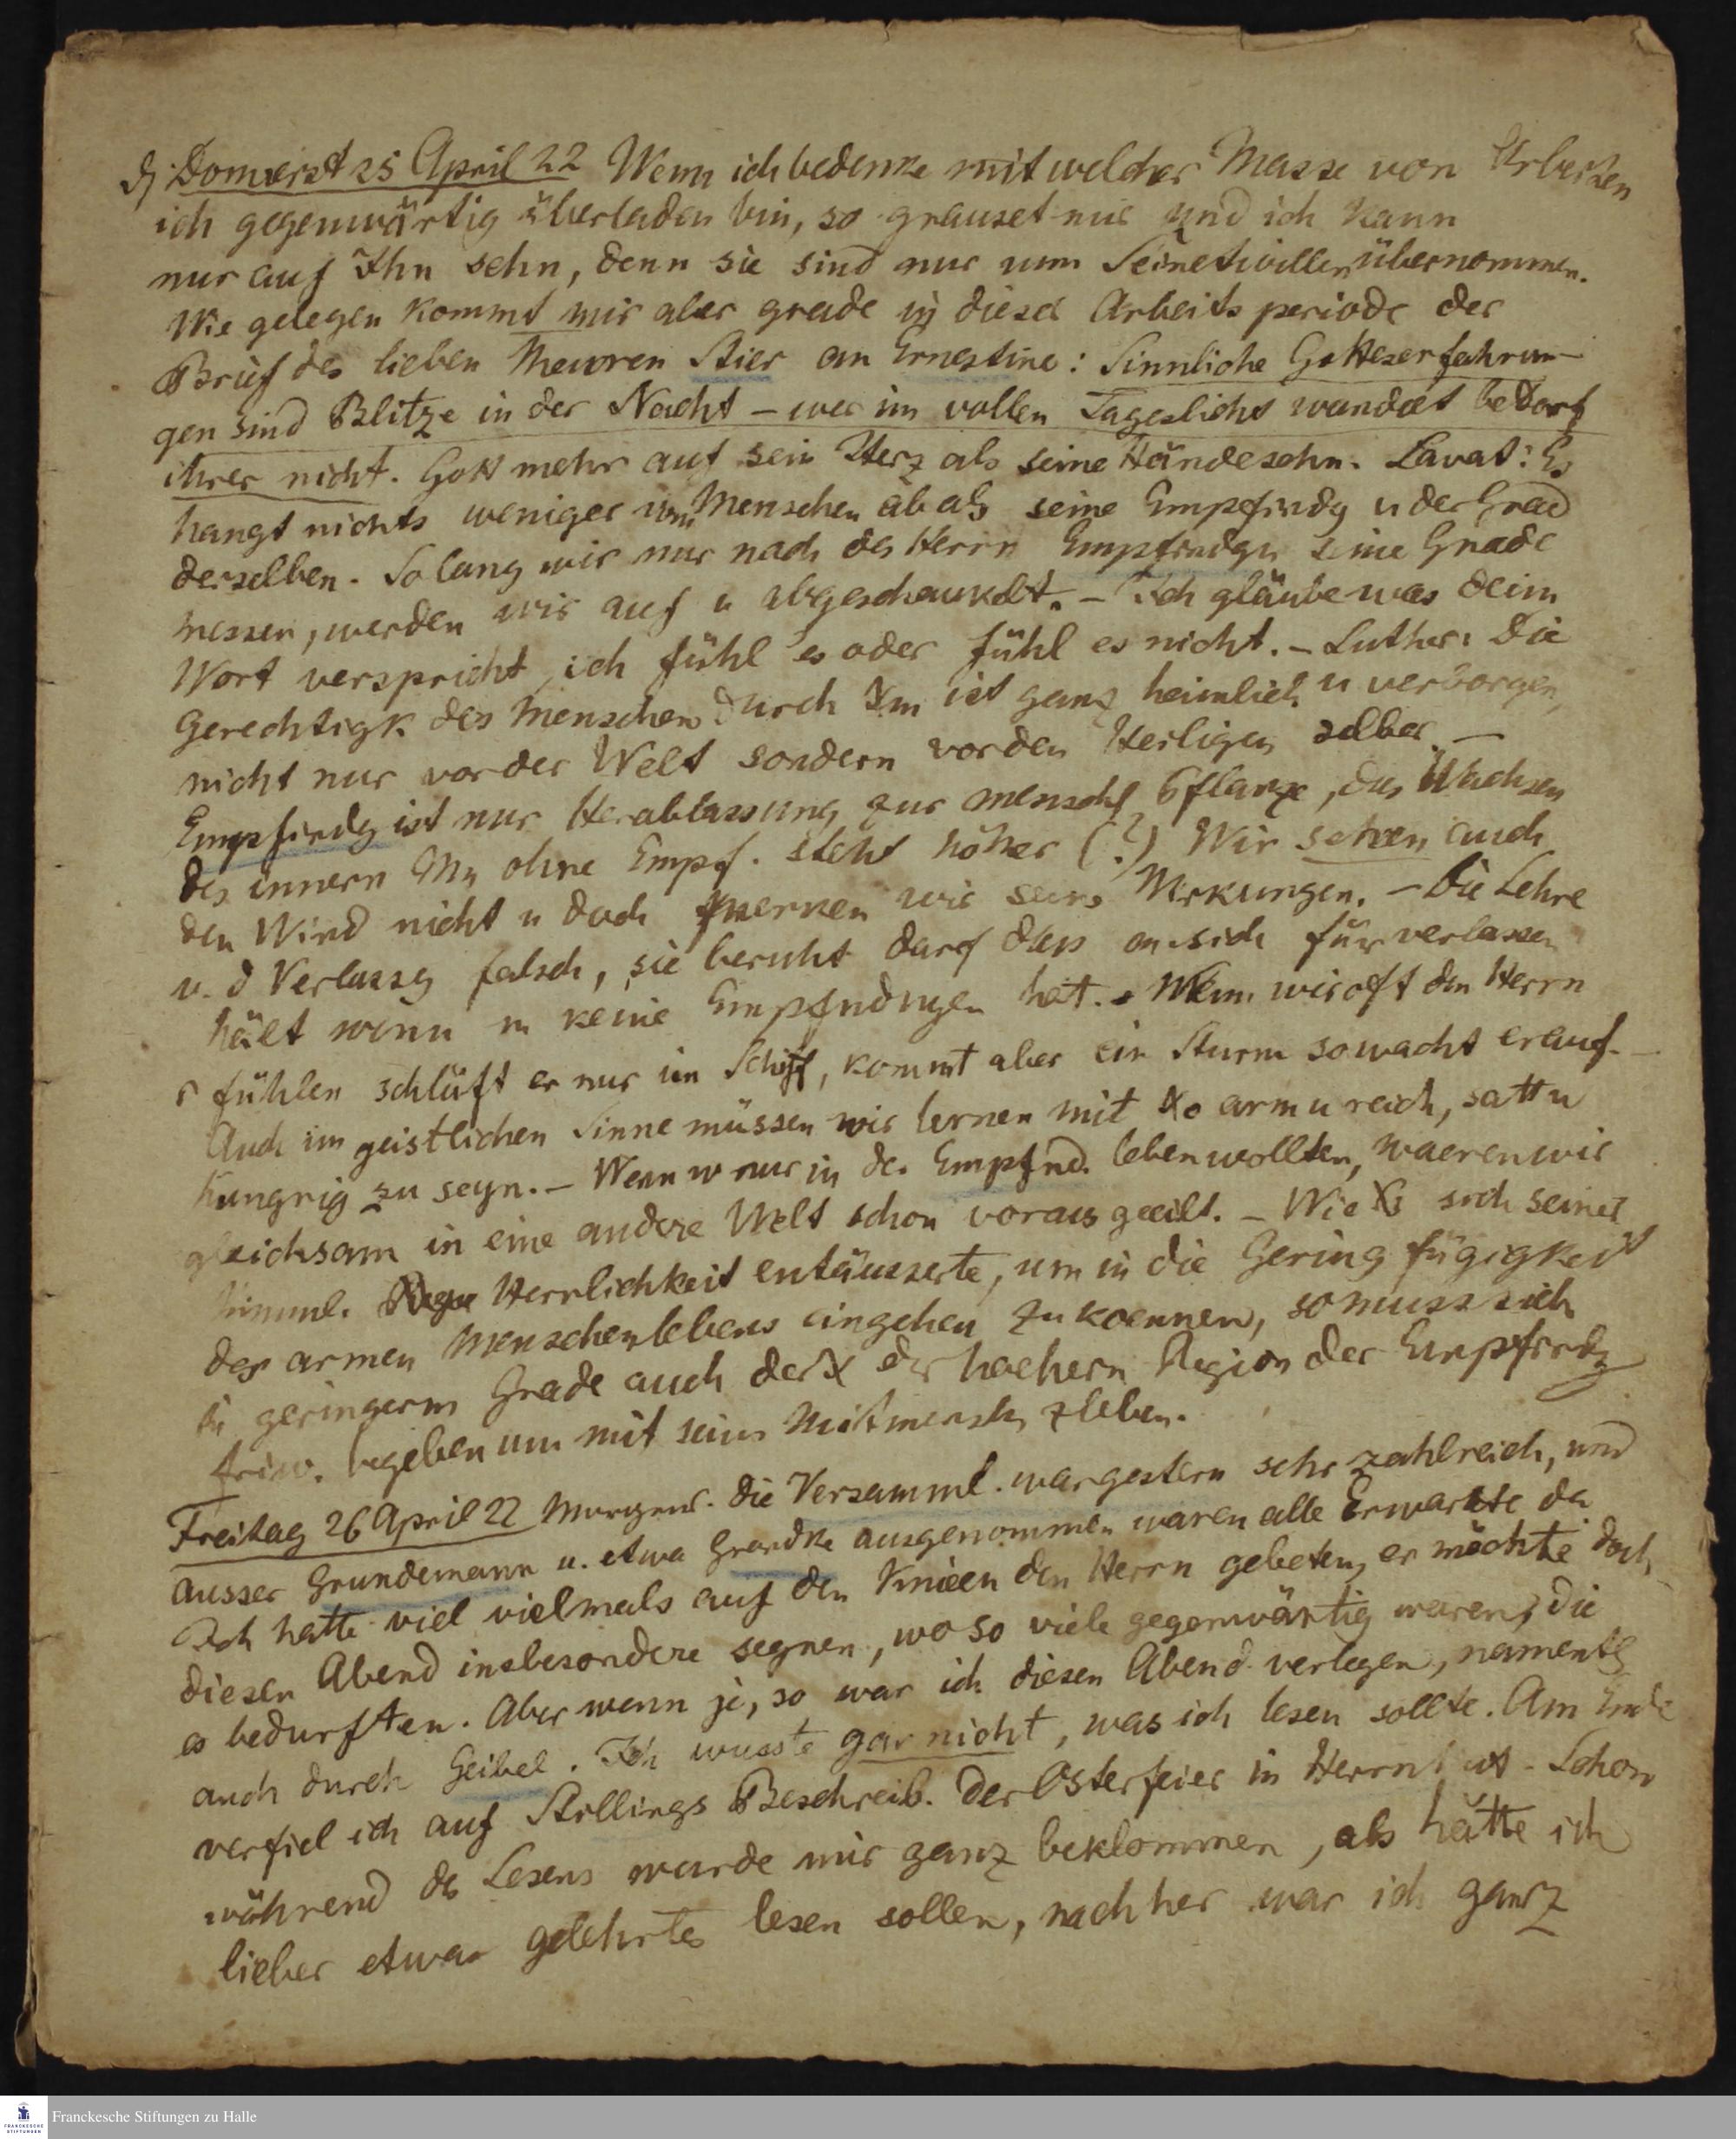 Donnerst 25 April 22 Wenn ich bedenke mit welcher Masse von Arbeiten
ich gegenwärtig überladen bin, so grauset mir und ich kann
nur auf Ihn sehn, denn sie sind nur um Seinetwillen übernommen.
Wie gelegen kommt mir aber grade in dieser Arbeitsperiode der
Brief des lieben theuren Stier an Ernestine: Sinnliche Gotteserfahrun-
gen sind Blitze in der Nacht – wer im vollen Tageslicht wandelt bedarf
ihrer nicht. Gott mehr auf sein Herz als seine Hände sehn. Lavat: Es
hangt nichts weniger vom Menschen ab als seine Empfindg u der Grad
derselben. So lang wir nur nach des Herrn Empfindgn seine Gnade
messen, werden wir auf u abgeschaukelt. – Ich gläube was dein
Wort verspricht, ich fühl es oder fühl es nicht. – Luther: Die
Gerechtigk des Menschen durch Xm ist ganz heimlich u verborgen,
nicht nur vor der Welt sondern vor den Heiligen selber. –
Empfindg ist nur Herablassung zur menschl Pflanze, das Wachsen
des innern Mn ohne Empf. steht höher (?) Wir sehen auch
den Wind nicht u doch merken wir seine Wirkungen. – Die Lehre
v. d Verlassg falsch, sie beruht darf dass m sich für verlassen
hält wenn m keine Empfndngen hat. – Wenn wir oft den Herrn
fühlen schläft er nur im Schiff, kommt aber ein Sturm so wacht er auf. –
Auch im geistlichen Sinne müssen wir lernen mit Xo arm u reich, satt u
hungrig zu seyn. – Wenn w nur in der Empfnd. leben wollten, waeren wir
gleichsam in eine andere Welt schon voraus geeilt. – Wie Xs sich seiner
himml. Herrlichkeit entäusserte, um in die Geringfügigkeit
des armen Menschenlebens eingehen zu koennen, so muss sich
in geringerm Grade auch der X der hoehern Region der Empfindg
friw. begeben um mit seinen Mitmenschn z leben.
Freitag 26 April 22 Morgens. Die Versamml. war gestern sehr zahlreich, und
ausser Grundemann u. etwa Grandke ausgenommen waren alle Erwartete da
Ich hatte viel vielmals auf den Knieen den Herrn gebeten, er möchte doch
diesen Abend insbesondere segnen, wo so viele gegenwärtig waren, die
es bedurften. Aber wenn je, so war ich diesen Abend verlegen, namentl
auch durch Geibel. Ich wusste gar nicht, was ich lesen sollte. Am Ende
verfiel ich auf Stillings Beschreib. der Osterfeier in Herrnhut. Schon
während des Lesens wurde mir ganz beklommen, als hätte ich
lieber etwas gelehrtes lesen sollen, nachher war ich ganz
Franckesche Stiftungen zu Halle
FRANCKESCHE
STIFTUNGEN